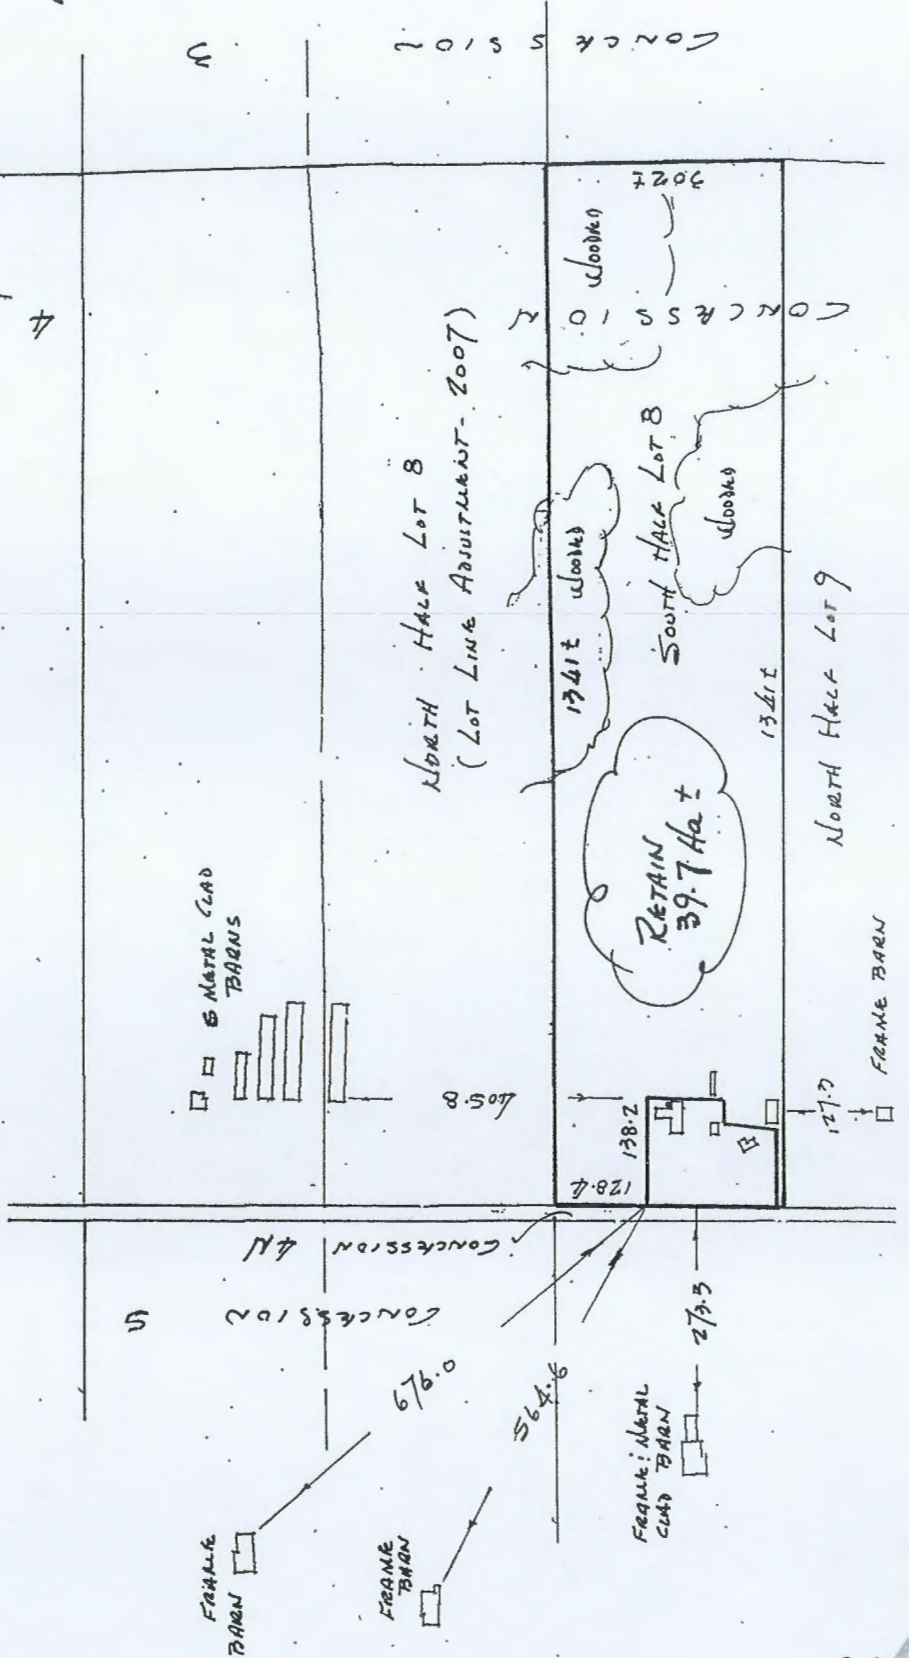 CONCESSION
3
302±
WOODED
CONCESSION
4
NORTH HALF LOT 8
(LOT LINE ADJUSTMENT - 2007)
WOODED
1341±
SOUTH HALF LOT 8
WOODED
1341±
NORTH HALF LOT 9
RETAIN
39.7 Ha ±
6 METAL CLAD
BARNS
405.8
138.2
128.4
127.3
FRAME BARN
CONCESSION 4N
CONCESSION
5
676.0
564.6
273.3
FRAME
BARN
FRAME
BARN
FRAME & METAL
CLAD BARN